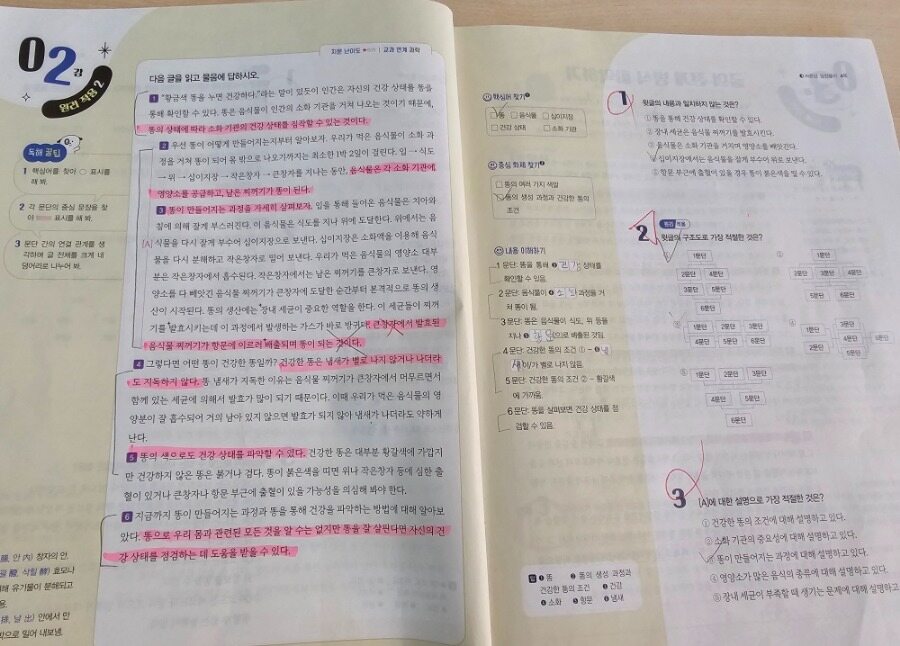 02강
원리 적용 2
독해 꿀팁
1 핵심어를 찾아 ○ 표시를
해 봐.
2 각 문단의 중심 문장을 찾
아 표시를 해 봐.
3 문단 간의 연결 관계를 생
각하며 글 전체를 크게 네
덩어리로 나누어 봐.
지문 난이도
교과 연계 과학
다음 글을 읽고 물음에 답하시오.
1 "황금색 똥을 누면 건강하다."라는 말이 있듯이 인간은 자신의 건강 상태를 똥을
통해 확인할 수 있다. 똥은 음식물이 인간의 소화 기관을 거쳐 나오는 것이기 때문에,
똥의 상태에 따라 소화 기관의 건강 상태를 짐작할 수 있는 것이다.
2 우선 똥이 어떻게 만들어지는지부터 알아보자. 우리가 먹은 음식물이 소화 과
정을 거쳐 똥이 되어 몸 밖으로 나오기까지는 최소한 1박 2일이 걸린다. 입 → 식도
→ 위 → 십이지장 → 작은창자 → 큰창자를 지나는 동안, 음식물은 각 소화 기관에
영양소를 공급하고, 남은 찌꺼기가 똥이 된다.
3 똥이 만들어지는 과정을 자세히 살펴보자. 입을 통해 들어온 음식물은 치아와
침에 의해 잘게 부스러진다. 이 음식물은 식도를 지나 위에 도달한다. 위에서는 음
[A] 식물을 다시 잘게 부수어 십이지장으로 보낸다. 십이지장은 소화액을 이용해 음식
물을 다시 분해하고 작은창자로 밀어 보낸다. 우리가 먹은 음식물의 영양소 대부
분은 작은창자에서 흡수된다. 작은창자에서는 남은 찌꺼기를 큰창자로 보낸다. 영
양소를 다 빼앗긴 음식물 찌꺼기가 큰창자에 도달한 순간부터 본격적으로 똥의 생
산이 시작된다. 똥의 생산에는 장내 세균이 중요한 역할을 한다. 이 세균들이 찌꺼
기를 발효시키는데 이 과정에서 발생하는 가스가 바로 방귀다. 큰창자에서 발효된
음식물 찌꺼기가 항문에 이르러 배출되면 똥이 되는 것이다.
4 그렇다면 어떤 똥이 건강한 똥일까? 건강한 똥은 냄새가 별로 나지 않거나 나더라
도 지독하지 않다. 똥 냄새가 지독한 이유는 음식물 찌꺼기가 큰창자에서 머무르면서
함께 있는 세균에 의해서 발효가 많이 되기 때문이다. 이때 우리가 먹은 음식물의 영
양분이 잘 흡수되어 거의 남아 있지 않으면 발효가 되지 않아 냄새가 나더라도 약하게
난다.
5 똥의 색으로도 건강 상태를 파악할 수 있다. 건강한 똥은 대부분 황금색에 가깝지
만 건강하지 않은 똥은 붉거나 검다. 똥이 붉은색을 띠면 위나 작은창자 등에 심한 출
혈이 있거나 큰창자나 항문 부근에 출혈이 있을 가능성을 의심해 봐야 한다.
6 지금까지 똥이 만들어지는 과정과 똥을 통해 건강을 파악하는 방법에 대해 알아보
았다. 똥으로 우리 몸과 관련된 모든 것을 알 수는 없지만 똥을 잘 살핀다면 자신의 건
강 상태를 점검하는 데 도움을 받을 수 있다.
안 內) 창자의 안.
삭힐 酵) 효모나
해 유기물이 분해되고
용.
날 出) 안에서 만
밖으로 밀어 내보냄.
핵심어 찾기
똥 음식물 십이지장
건강 상태 소화 기관
중심 화제 찾기
똥의 여러 가지 색깔
똥의 생성 과정과 건강한 똥의
조건
내용 이해하기
1 문단: 똥을 통해 건강 상태를
확인할 수 있음.
2 문단: 음식물이 소화 과정을 거
쳐 똥이 됨.
3 문단: 똥은 음식물이 식도, 위 등을
지나 항문으로 배출된 것임.
4 문단: 건강한 똥의 조건 ① - 냄
새이/가 별로 나지 않음.
5 문단: 건강한 똥의 조건 ② - 황금색
에 가까움.
6 문단: 똥을 살펴보면 건강 상태를 점
검할 수 있음.
답 ❶ 똥 ❷ 똥의 생성 과정과
건강한 똥의 조건 ❸ 건강
❹ 소화 ❺ 항문 ❻ 냄새
1 윗글의 내용과 일치하지 않는 것은?
① 똥을 통해 건강 상태를 확인할 수 있다.
② 장내 세균은 음식물 찌꺼기를 발효시킨다.
③ 음식물은 소화 기관을 거치며 영양소를 빼앗긴다.
④ 십이지장에서는 음식물을 잘게 부수어 위로 보낸다.
⑤ 항문 부근에 출혈이 있을 경우 똥이 붉은색을 띨 수 있다.
원리 적용
2 윗글의 구조도로 가장 적절한 것은?
①
1문단
2문단 3문단 4문단
5문단
6문단
②
1문단
2문단
4문단
5문단
③
1문단
2문단 4문단
3문단 5문단
6문단
④
1문단
2문단
3문단
4문단
5문단
⑤
1문단 2문단 3문단
4문단 5문단
6문단
3 [A]에 대한 설명으로 가장 적절한 것은?
① 건강한 똥의 조건에 대해 설명하고 있다.
② 소화 기관의 중요성에 대해 설명하고 있다.
③ 똥이 만들어지는 과정에 대해 설명하고 있다.
④ 영양소가 많은 음식의 종류에 대해 설명하고 있다.
⑤ 장내 세균이 부족할 때 생기는 문제에 대해 설명하고